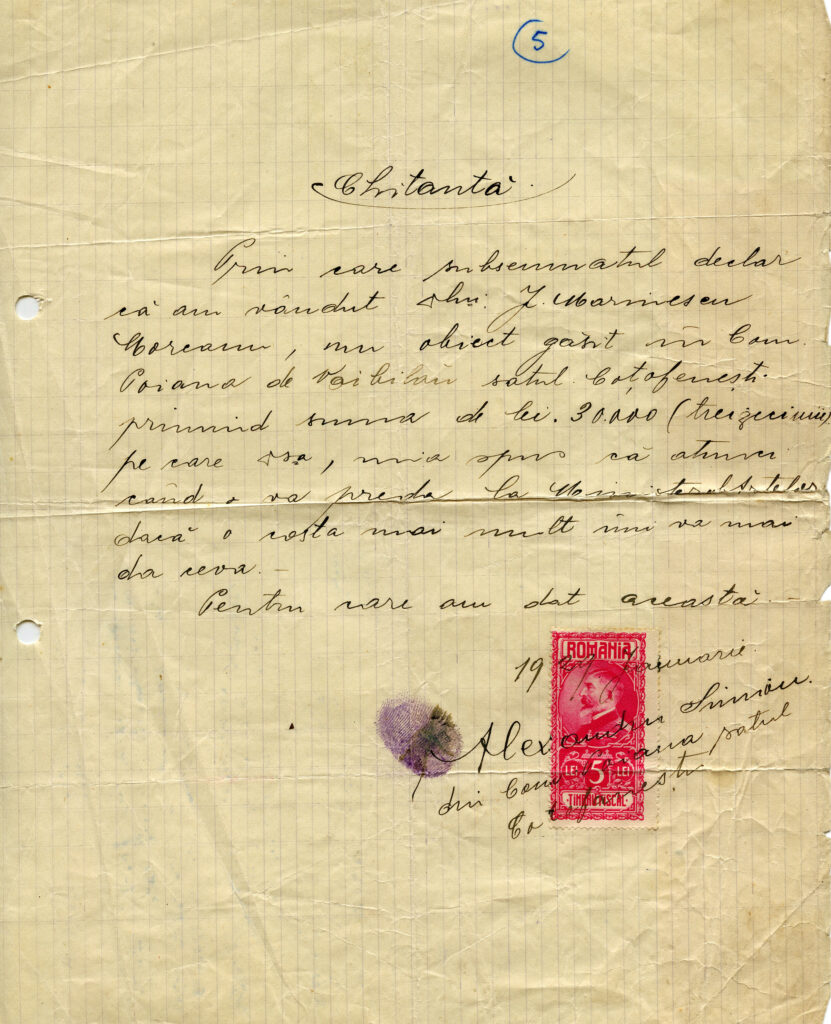 5
Chitantă.
Prin care subsemnatul declar
că am vândut dlui. J. Marinescu
Moreanu, un obiect găsit în Com.
Poiana de Vărbilău satul Coțofenești.
primind suma de lei. 30.000 (treizecimii)
pe care dsa, mia spus că atunci
când o va preda la Ministerul Artelor
dacă o costa mai mult îmi va mai
da ceva.—
Pentru care am dat această.—
1929 Ianuarie.
ROMANIA
Alexandru Simion.
din Com. Poiana satul
Coțofenești
LEI 5 LEI
TIMBRU FISCAL